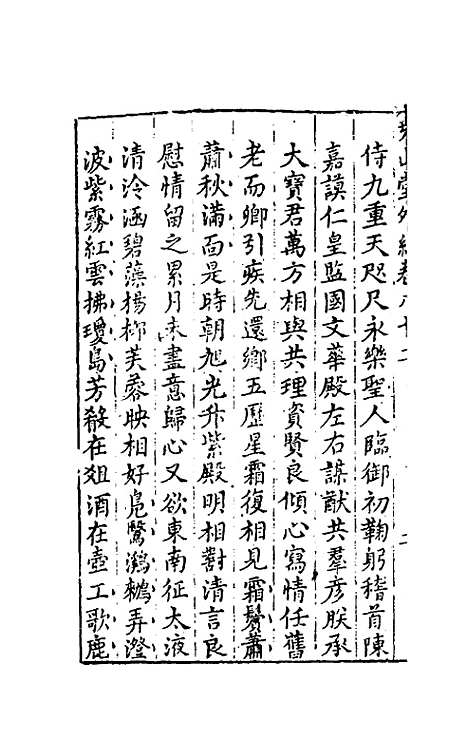 堯山堂外紀卷八十二
二
侍九重天咫尺永樂聖人臨御初鞠躬稽首陳
嘉謨仁皇監國文華殿左右謀猷共羣彥朕承
大寶君萬方相與共理資賢良傾心寫情任舊
老而鄉引疾先還鄉五歷星霜復相見霜鬢蕭
蕭秋滿面是時朝旭光升紫殿明相對清言良
慰情留之累月未盡意歸心又欲東南征太液
清泠涵碧藻楊柳芙蓉映相好鳧鷖鸂鶒弄澄
波紫霧紅雲拂瓊島芳殽在俎酒在壺工歌鹿